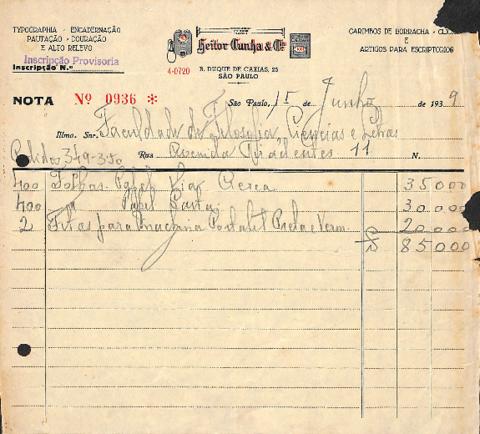 TYPOGRAPHIA - ENCADERNAÇÃO
PAUTAÇÃO - DOURAÇÃO
E ALTO RELEVO
Inscripção Provisoria
Inscripção N.º
Heitor Cunha & Cia
4-0720
R. DUQUE DE CAXIAS, 25
SÃO PAULO
CARIMBOS DE BORRACHA - CLIC
E
ARTIGOS PARA ESCRIPTORIOS
NOTA Nº 0936 *
São Paulo, 15 de Junho de 1939
Illmo. Snr. Faculdade de Filosofia, Ciencias e Letras
Pedidos 349-350 Rua Avenida Tiradentes 11 N.
400 Folhas Aerea 35000
400 " Papel Carta 30000
2 Fitas para machina Portatil Preta e Verm 20000
$ 85000